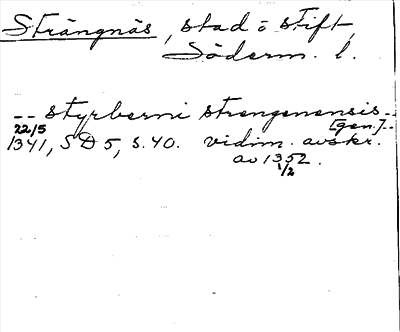 Strängnäs, stad o stift,
Söderm. l.
-- styrberni strengenensis --
[gen.]
22/5
1341, SD 5, s. 40. vidim. avskr.
av 1352.
1/2